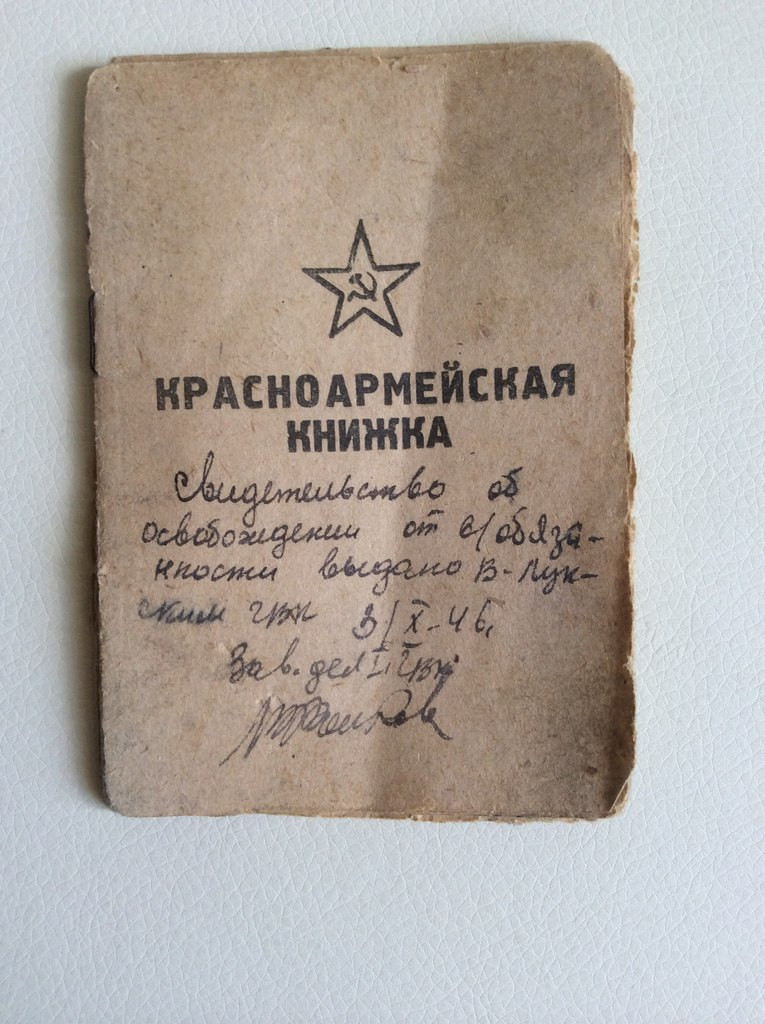 КРАСНОАРМЕЙСКАЯ
КНИЖКА
Свидетельство об
освобождении от в/обяза-
нности выдано В-Лук-
ским ГВК 3/X-46.
Зав. дел I ГВК